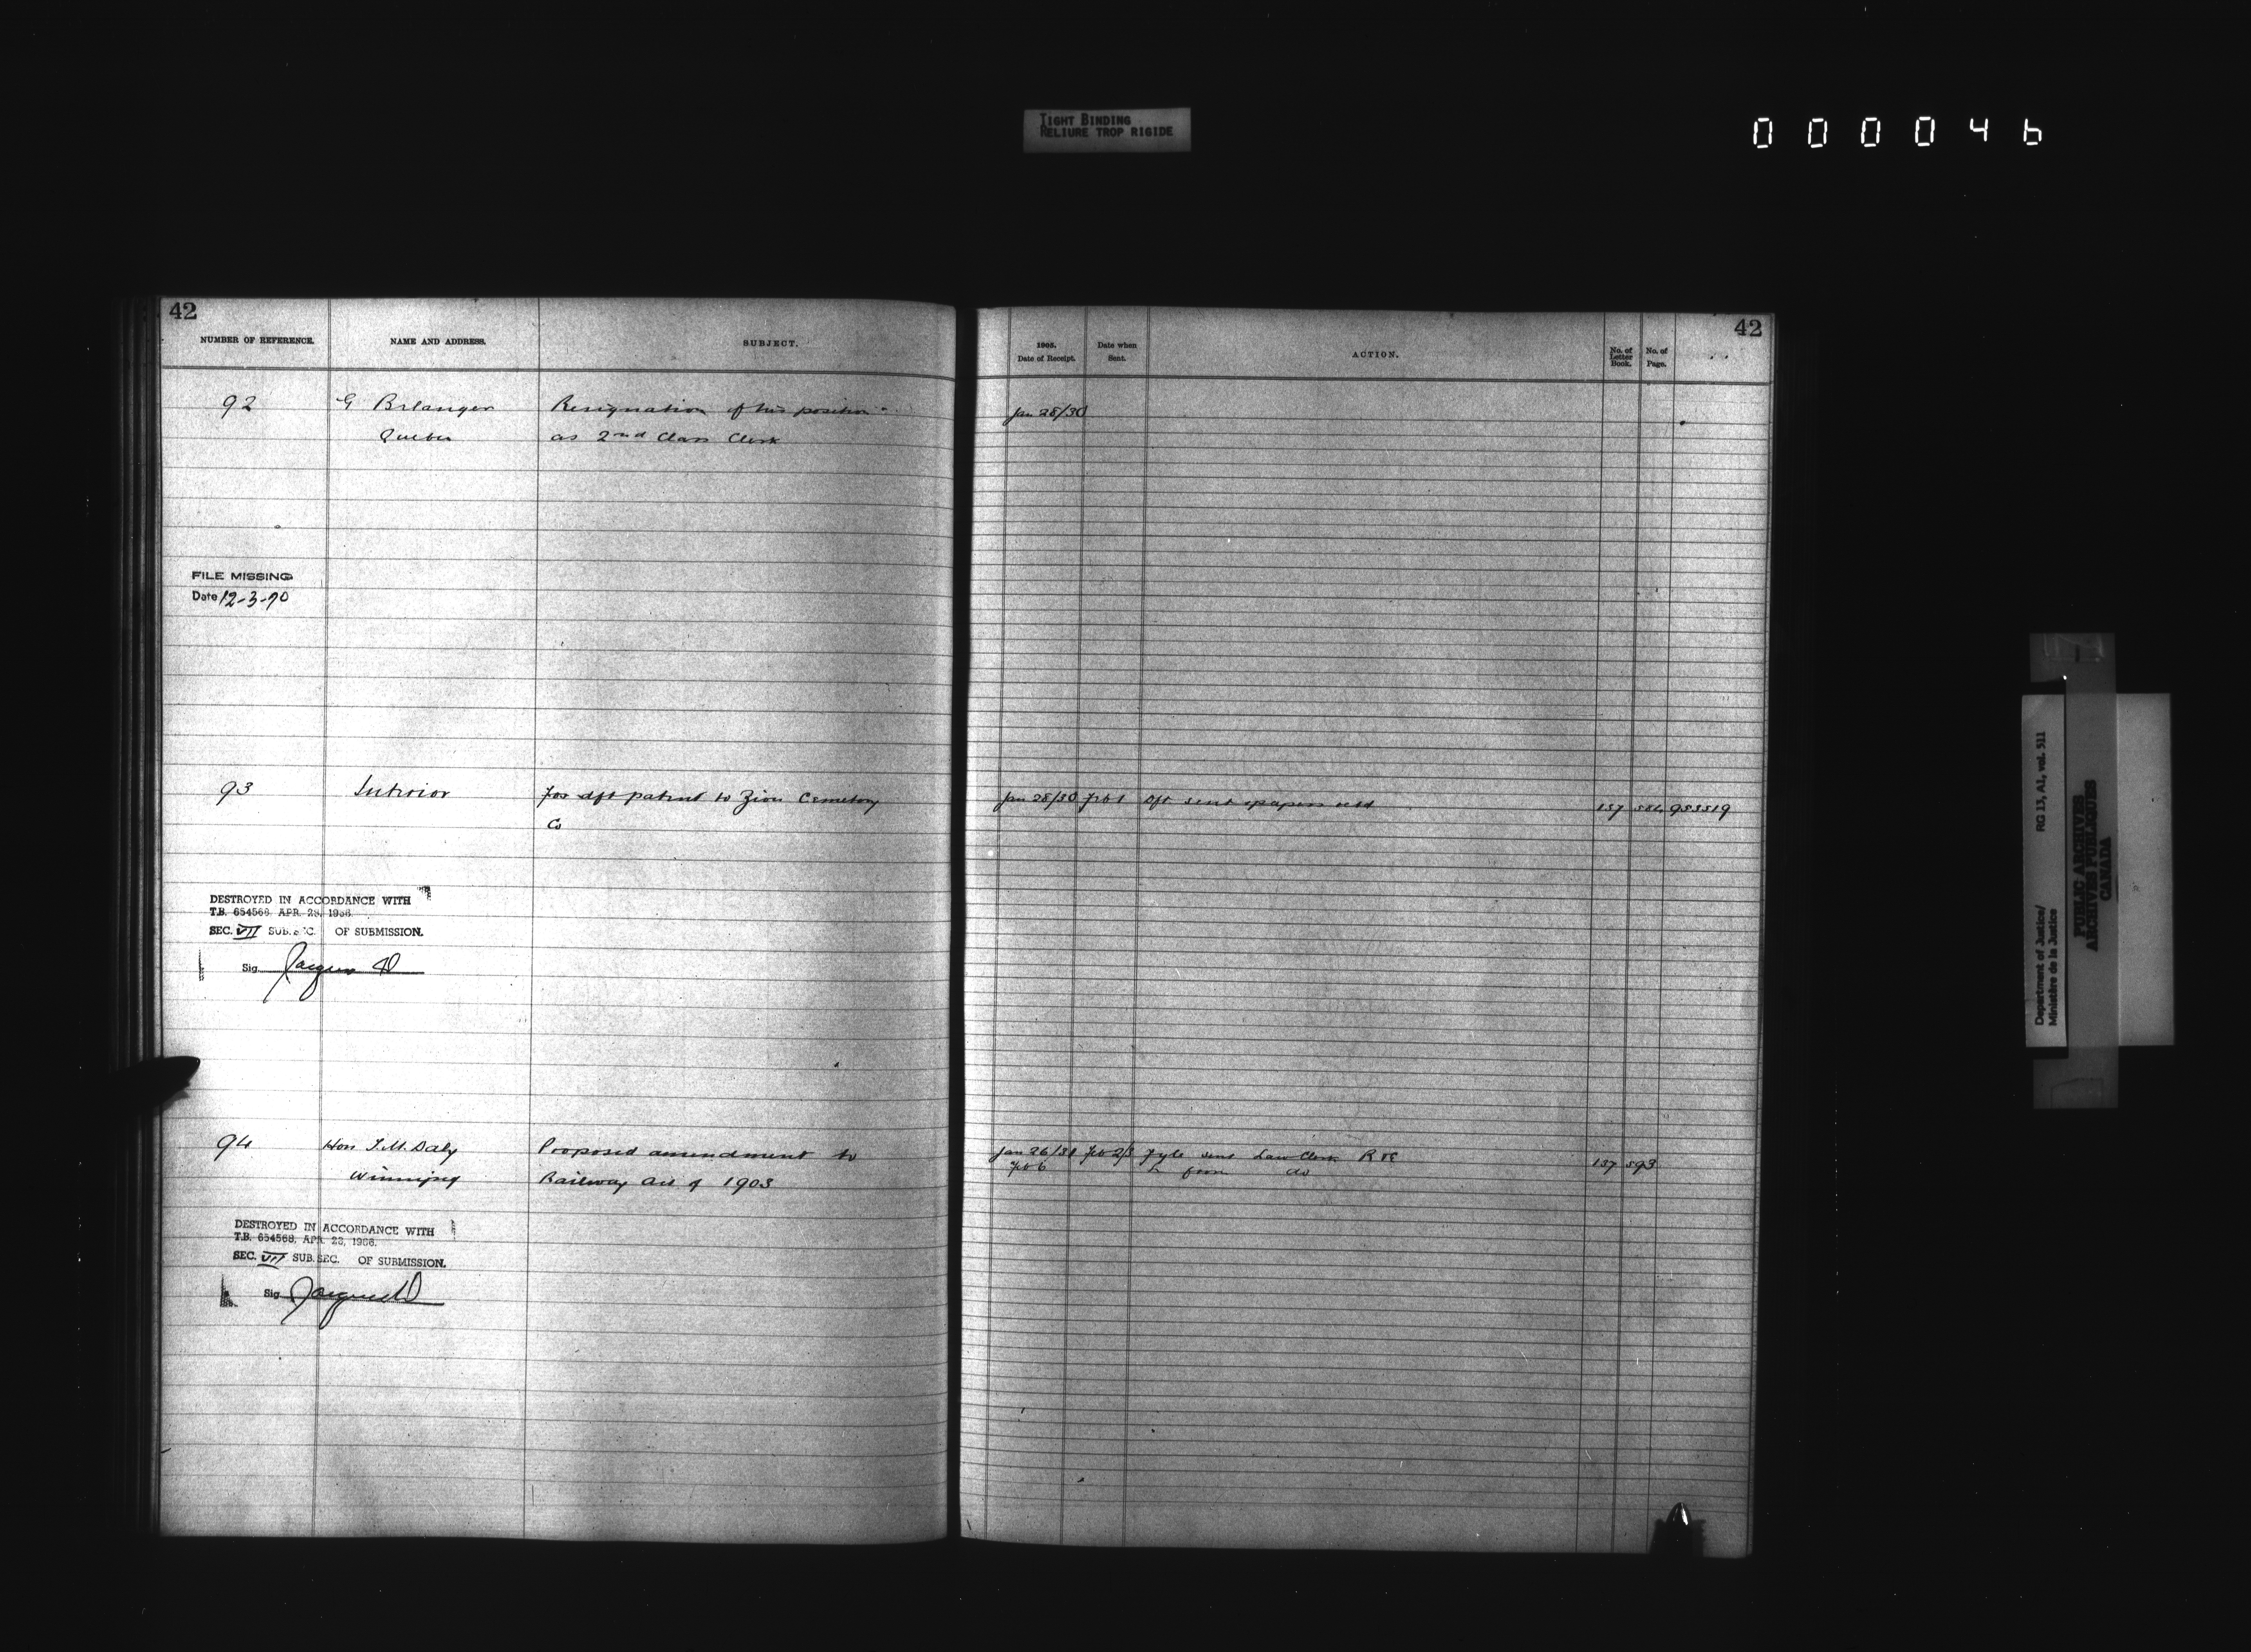 TIGHT BINDING
RELIURE TROP RIGIDE
000046
42
NUMBER OF REFERENCE.
NAME AND ADDRESS.
SUBJECT.
92
G Belanger
Quebec
Resignation of his position
as 2nd Class Clerk
FILE MISSING
Date 12-3-70
93
Interior
For dft patent to Zion Cemetery
Co
DESTROYED IN ACCORDANCE WITH
T.B. 654568, APR. 28, 1966.
SEC. VII SUB. SEC. OF SUBMISSION.
Sig. Jacques D
94
Hon T.M. Daly
Winnipeg
Proposed amendment to
Railway Act of 1903
DESTROYED IN ACCORDANCE WITH
T.B. 654568, APR. 28, 1966.
SEC. VII SUB. SEC. OF SUBMISSION.
Sig. Jacques D
42
1905.
Date of Receipt.
Date when
Sent.
ACTION.
No. of
Letter
Book.
No. of
Page.
Jan 28/30
Jan 28/30 Feb 1 Dft sent papers retd 137
Jan 26/30 Feb 2/3 Fyle sent Law Clerk 137 593
Feb 6 from do
Department of Justice/ RG 13, A1, vol. 511
Ministère de la Justice
PUBLIC ARCHIVES
ARCHIVES PUBLIQUES
CANADA